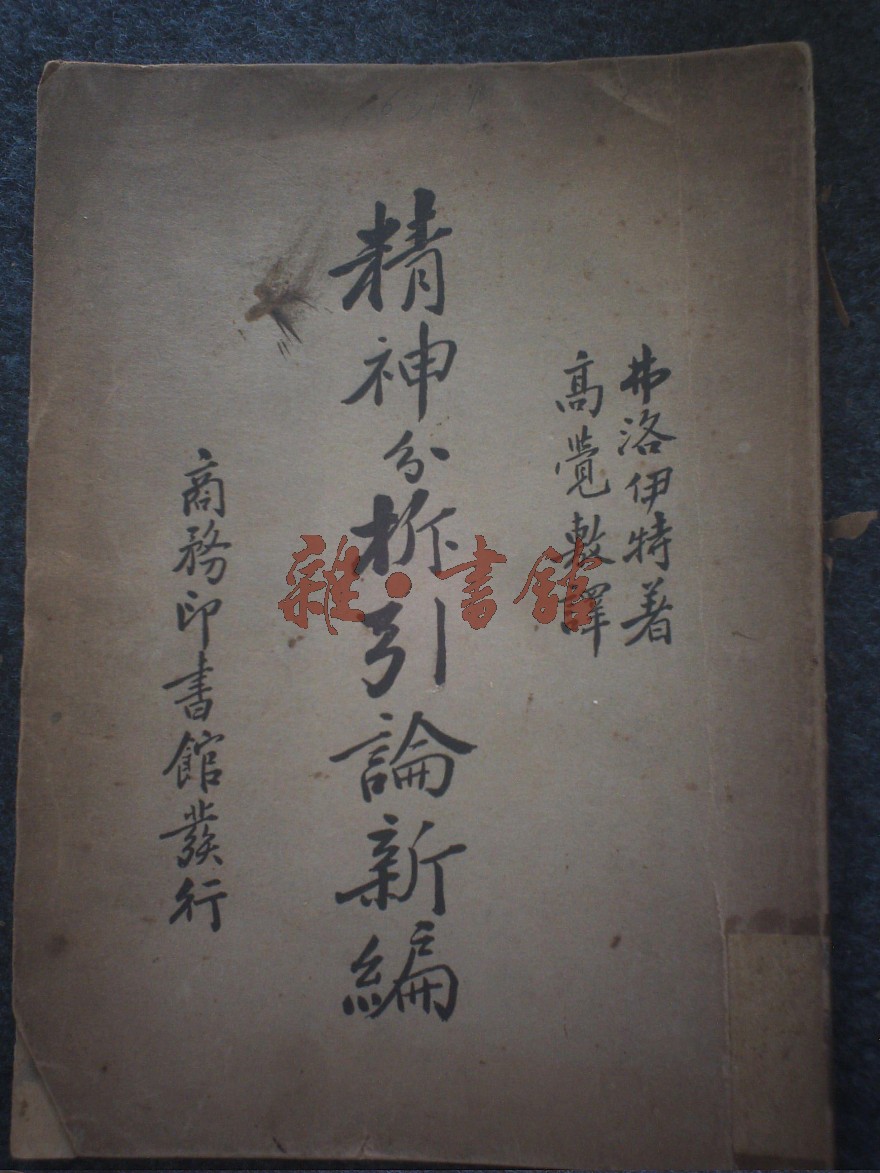 弗洛伊特著
高覺敷譯
精神分析引論新編
商務印書館發行
雜·書館